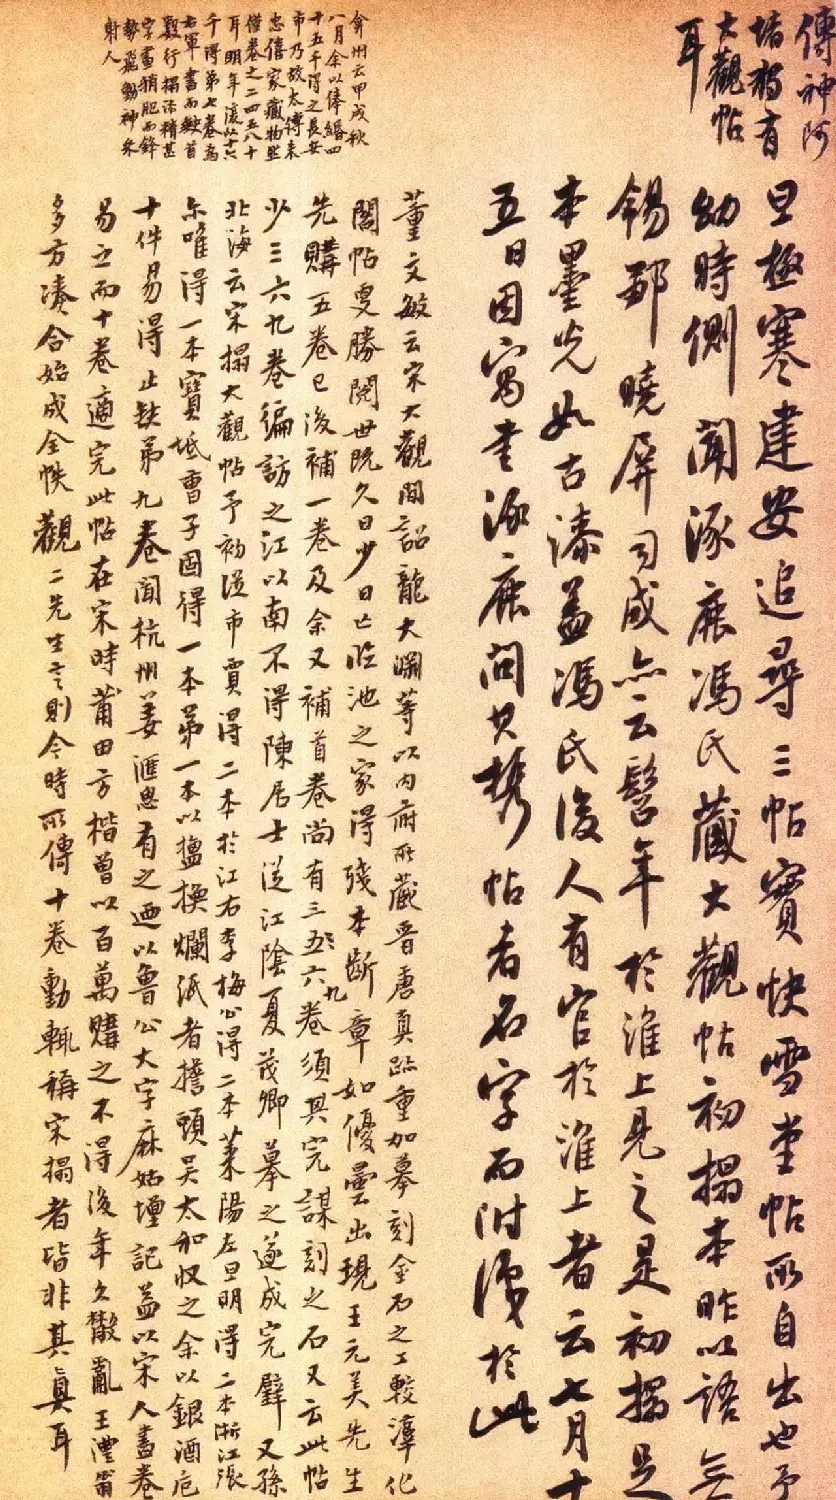 傳神阿
堵猶有
大觀帖
耳
旦極寒建安追尋三帖寶快雪堂帖所自出也予
幼時側聞涿鹿馮氏藏大觀帖初搨本昨以語無
錫鄒曉屏司成亦云髫年於淮上見之是初搨足
本墨光如古漆蓋馮氏後人有官於淮上者云七月十
五日因寓書涿鹿問其攜帖者名字而附識於此
弇州云甲戌秋
八月余以俸緡四
十五千得之長安
市乃故太傅朱
忠僖家藏物然
僅卷之二四五八十
耳明年復以十六
千得第七卷為
右軍書而缺首
數行搨法精甚
字畫稍肥而鋒
勢飛動神采
射人
董文敏云宋大觀間詔龍大淵等以內府所藏晉唐真跡重加摹刻金石之工較淳化
閣帖更勝閱世既久日少日亡臨池之家得殘本斷章如優曇出現王元美先生
先購五卷已後補一卷及余又補首卷尚有三五六九卷須其完謀刻之石又云此帖
少三六九卷徧訪之江以南不得陳居士從江陰夏茂卿摹之遂成完璧又孫
北海云宋搨大觀帖予初從市賈得二本於江右李梅公得二本萊陽左旦明得二本浙江張
尔唯得一本寶坻曹子固得一本第一本以搵換爛紙者擔頭吳太和收之余以銀酒卮
十件易得止缺第九卷聞杭州姜匯思有之迺以魯公大字麻姑壇記益以宋人畫卷
易之而十卷適完此帖在宋時莆田方楷曾以百萬購之不得後年久散亂王澧甫
多方湊合始成全帙觀二先生言則今時所傳十卷動輒稱宋搨者皆非其真耳